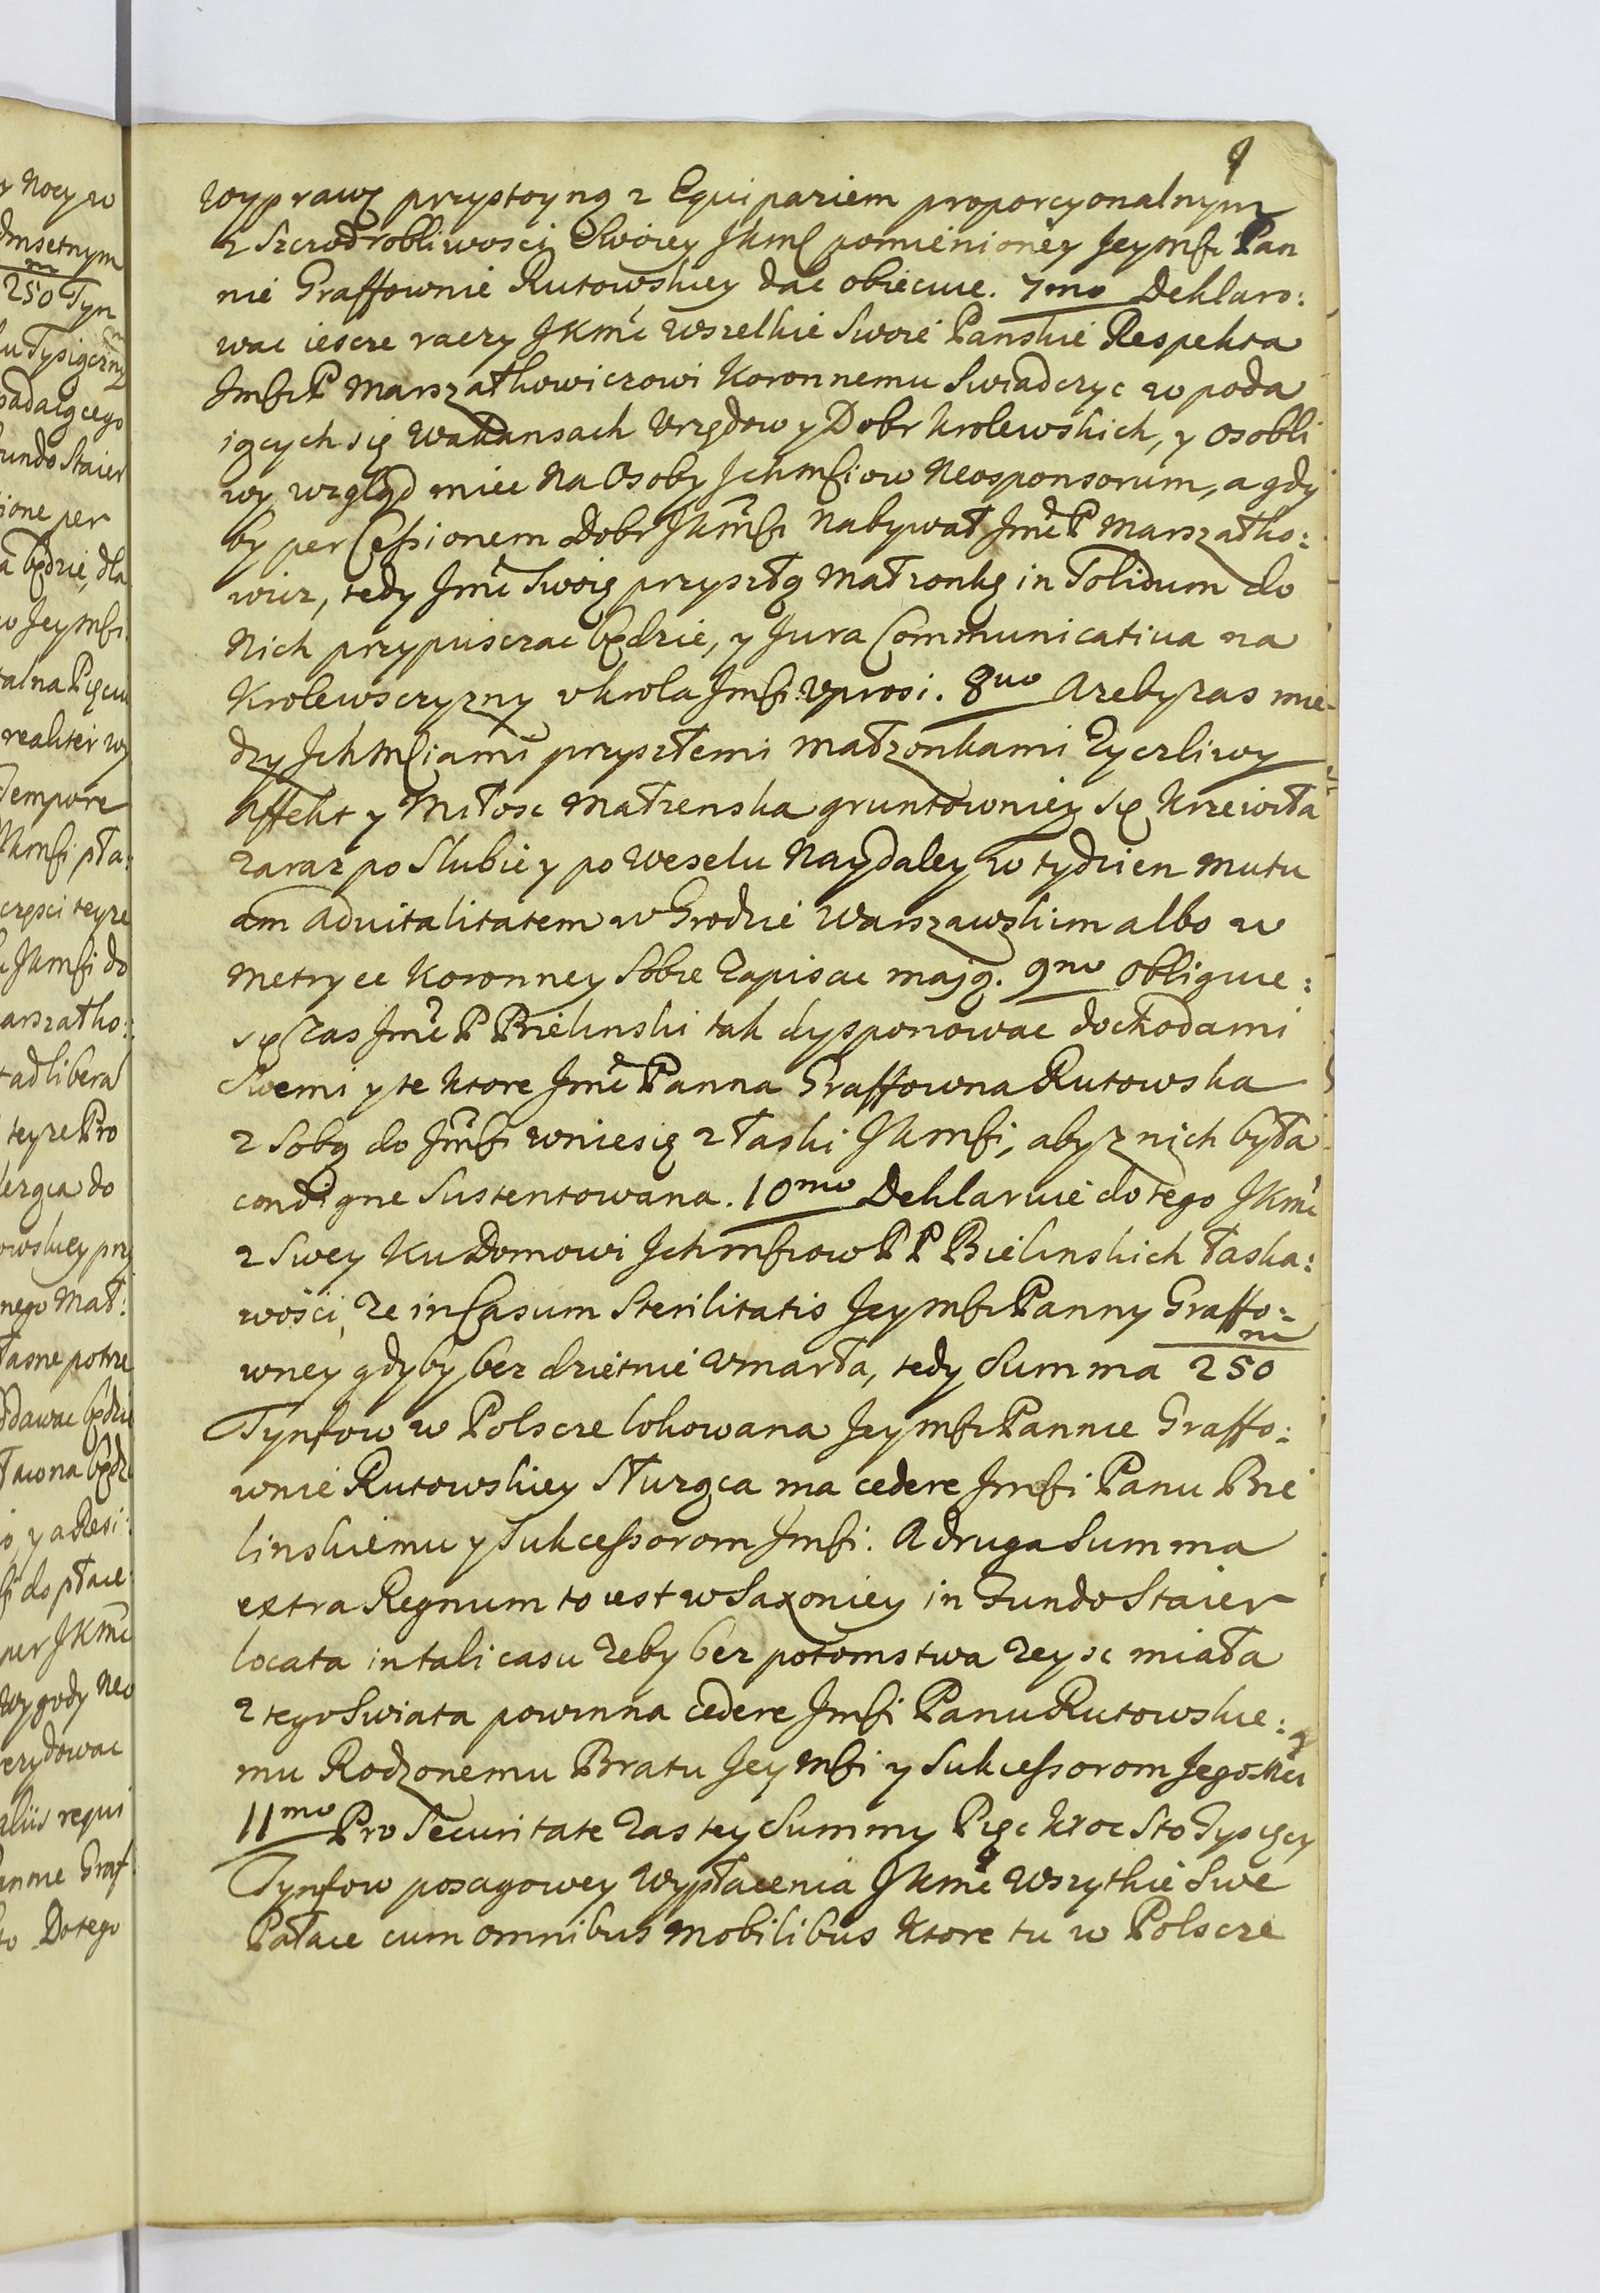 y Nocy w
dmsetnym
m
250 Tyn
lu Tysięczny
padaiącego
fundo Staier
tione per
a będzie, dla
w Jeymści
talna Pięciu
realiter wy
Tempore
JKmści pła:
częsci teyze
u JKmści do
arszałko:
t ad libera
teyze Pro
lerzca do
owskiey przy
nego Mał:
łasne potrze
ddawac będzie
ławna będz
is, y a Resi:
ści do płace
per JKmć
wygody Neo
rezydowac
aliis requi
annie Graf
to Do tego
9
wyprawę przystoyną z Equipaziem proporcyonalnym
z Szczodrobliwosci Swoiey JKmć pomienioney Jeymści Pan
nie Graffownie Rutowskiey dac obiecuie. 7mo Deklaro:
wac iescze raczy JKmć wszelkie Swoie Panskie Respekta
Jmści P Marszałkowiczowi Koronnemu Swiadczyc w poda
iących się Wakansach Urzędow y Dobr Krolewskich, y osobli
wy wzgląd miec na Osoby Jchmściow Neosponsorum, a gdy
by per Cessionem Dobr JKmści Nabywał Jmć P Marszałko:
wicz, tedy Jmć Swoię przyszłą Małzonkę in Solidum do
Nich przypusczac będzie, y Jura Communicativa na
Krolewsczyzny u Krola Jmści uprosi. 8uo Azeby zas mie
dzy Jchmściami przyszłemi Małzonkami Zyczliwy
Affekt y Miłosc Małzenska gruntowniey się Krzewiła
zaraz po Slubie y po Weselu Naydaley w tydzien mutu
am Advitalitatem w Grodzie Warszawskim albo w
Metryce Koronney Sobie Zapisac mają. 9no Obliguie:
się zas Jmć P Bielinski tak dysponowac dochodami
Swemi y te ktore Jmć Panna Graffowna Rutowska
z Sobą do Jmści wniesie z łaski JKmści, aby z nich była
condigne Sustentowana. 10mo Deklaruie do tego JKmć
z Swey Ku Domowi Jchmściow PP Bielinskich łaska:
wości, ze in Casum Sterilitatis Jeymści Panny Graffo:
wney gdyby bez dzietnie umarła, tedy Summa 250
m
Tynfow w Polscze lokowana Jeymści Pannie Graffo:
wnie Rutowskiey Słuząca ma cedere Jmści Panu Bie
linskiemu y Sukcessorom Jmści. A druga Summa
extra Regnum to iest w Saxoniey in Fundo Staier
locata in tali casu zeby bez potomstwa zeysc miała
z tego Swiata powinna cedere Jmści Panu Rutowskie:
mu Rodzonemu Bratu Jeymści y Sukcessorom Jegomści
11mo Pro Securitate zas tey Summy Pięc kroc Sto Tysięcy
Tynfow posagowey wypłacenia JKmć Wszytkie Swe
Pałace cum omnibus mobilibus ktore tu w Polscze